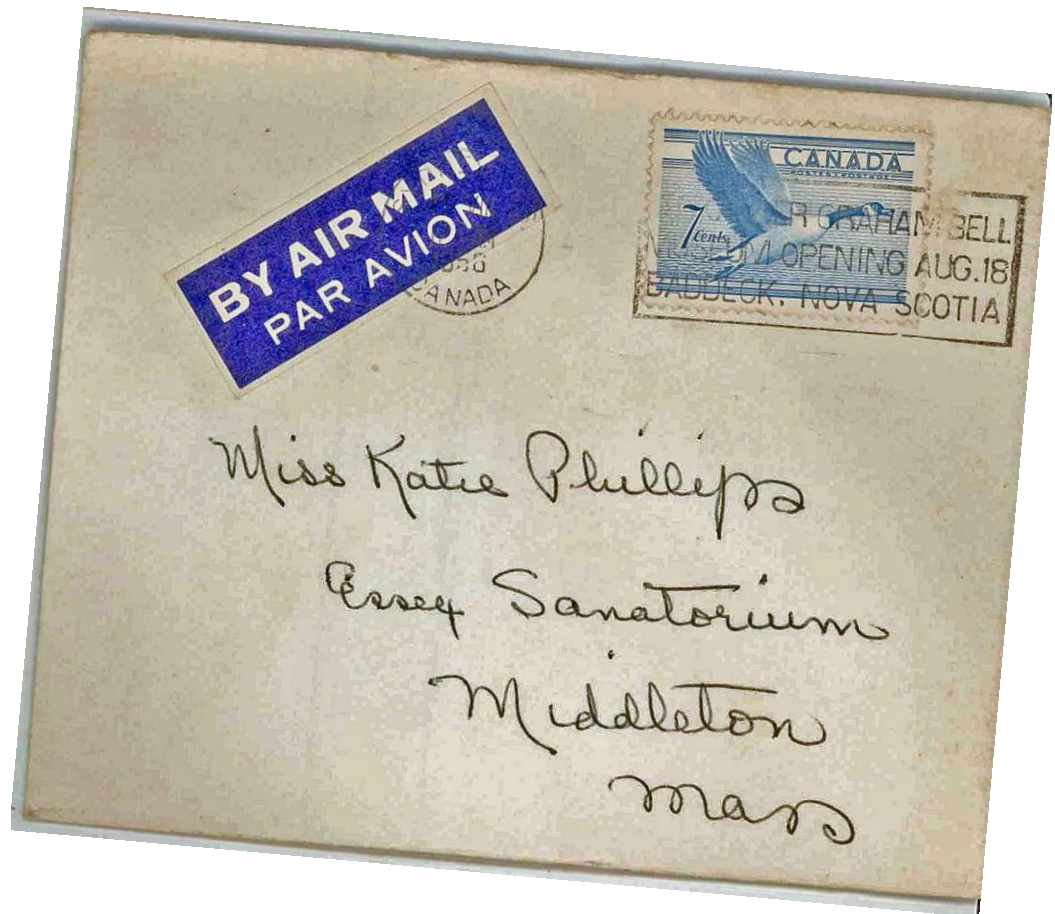 BY AIR MAIL
PAR AVION
CANADA
CANADA
POSTES POSTAGE
7 cents
GRAHAM BELL
MUSEUM OPENING AUG. 18
BADDECK, NOVA SCOTIA
Miss Katie Phillips
Essex Sanatorium
Middleton
Mass